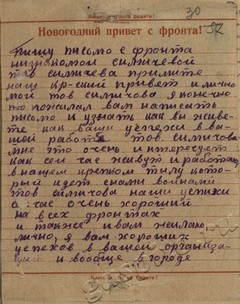 30
92
Новогодний привет с фронта!
Пишу письмо с фронта
незнакомой силичевой
тов силичева примите
наш кр-ский привет и лично
мой тов силичова я конечно
пожелал вам написать
письмо и узнать как вы живе-
те как ваши успехи в ва-
шей работе тов силичова
мне это очень интересует
как сей час живут и работают
в нашем крепком тылу кото-
рый идет
тов силичова наши успехи
с час очень хороший
на всех фронтах
и также и вам желаю
лично, я вам хороших
успехов в вашей организа-
ции и вообще в городе